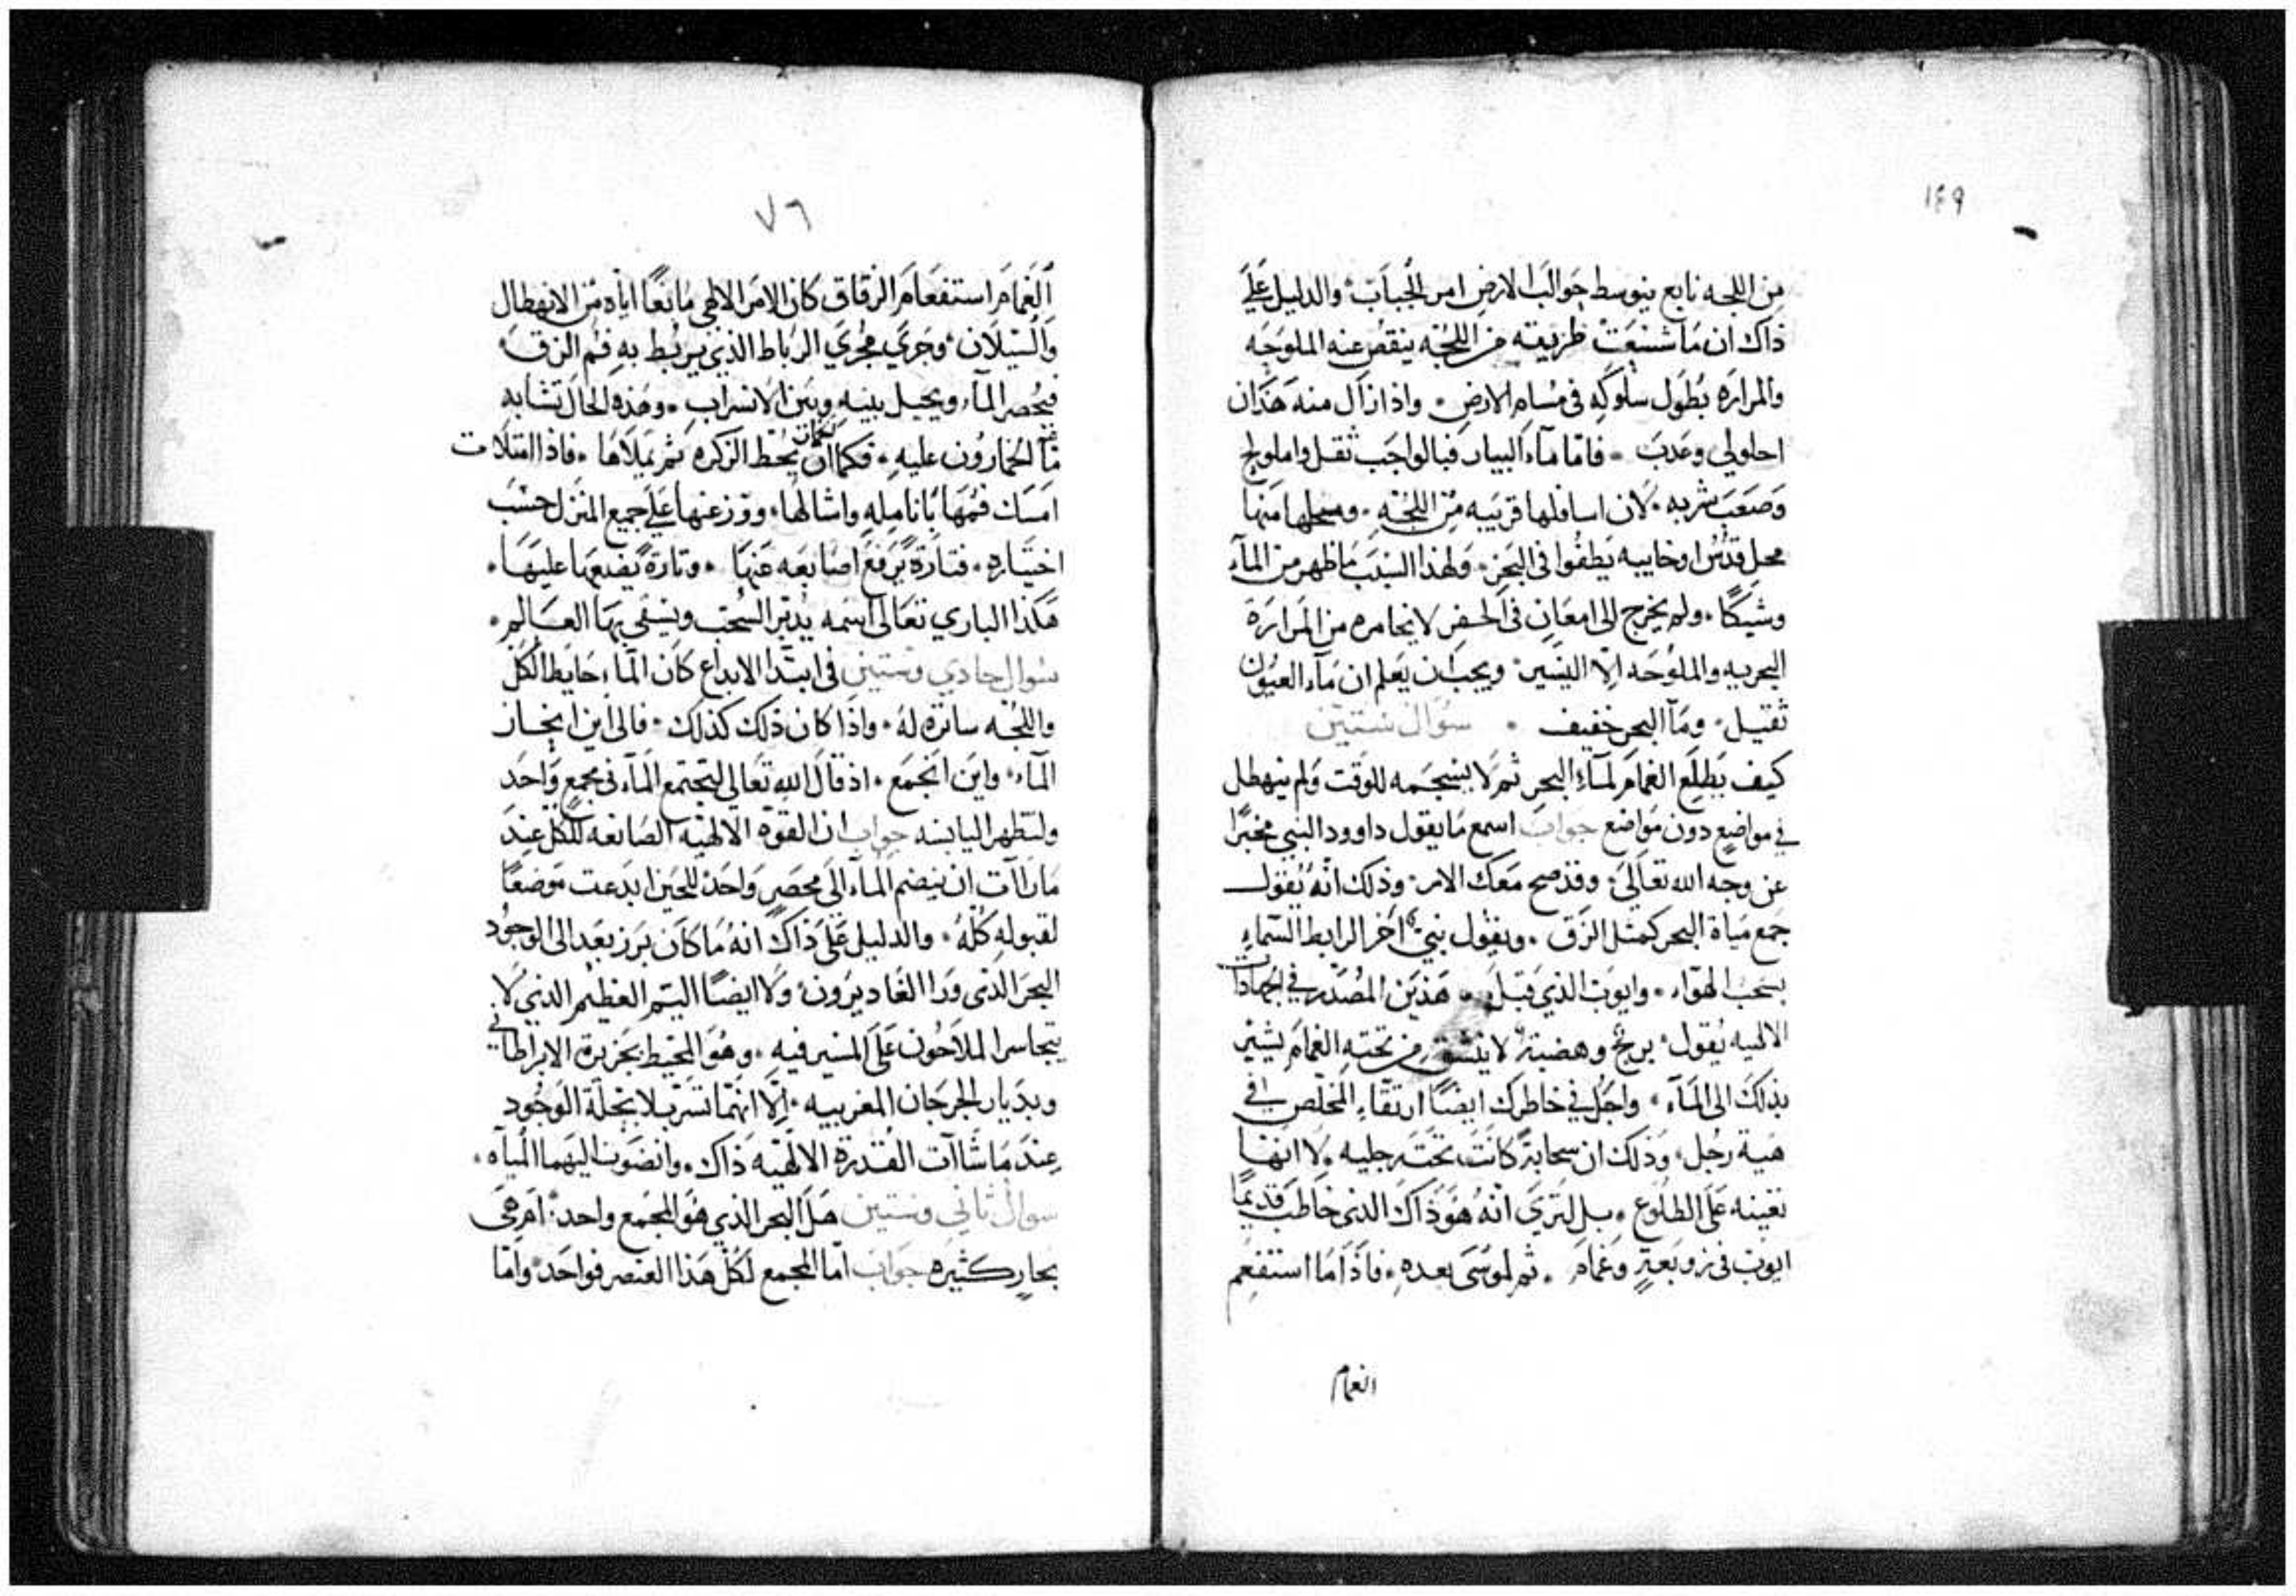 ١٤٩
من اللجه نابع يتوسط جوالب الارض امر الجبات والدليل علي
ذاك ان ما شسعت طريقته من اللجه ينقص عنه الملوحه
والمراره بطول سلوكه في مسام الارض واذا زال منه هذان
احلولي وعدب فاما ماء البيار فبالواجب ثقل واملولح
وصعب شربه لان اسافلها قريبه من اللجه ومحلها منها
محل قدس او خابيه يطفوا في البحر ولهذا السبب ما ظهر من الماء
وشيكا ولم يخرج الى امعان في الحفر لا يخامره من المراره
البحريه والملوحه الا اليسير ويجب ان يعلم ان ماء العيون
ثقيل وماء البحر خفيف سوال ستين
كيف يطلع الغمام لماء البحر ثم لا ينسجمه للوقت ولم ينهطل
في مواضع دون مواضع جواب اسمع ما يقول داوود النبي مخبرا
عن وجه الله تعالى وقد صح معك الامر وذلك انه يقول
جمع مياة البحر كمثل الزق ويقول نبي اخر الرابط السماء
بسحب الهواء وايوب الذي قبل هذين المصدر في الجهادات
الالهيه يقول بريح وهضبة لا ينشق من تحته الغمام يشير
بذلك الى الماء واجل في خاطرك ايضا ارتقاء المخلص في
هية رجل وذلك ان سحابة كانت تحت رجليه لا انها
تعينه على الطلوع بل لترى انه هو ذاك الذي خاطب قديما
ايوب في زوبعة وغمام ثم لموسى بعده فاذا ما استفعم
الغمام
٧٦
الغمام استفعام الزقاق كان الامر الالهي مانعا اياه من الانهطال
والسيلان وجري مجري الرباط الذي يربط به فم الزق
فيحصر الماء ويحيل بينه وبين الانسراب وهذه الحال تشابه
ما الخمارون عليه فكما ان يحط الزكره ثم يملاها فاذا امتلات
امسك فمها بانامله واشالها ووزع منها علي جميع المنزل حسب
اختياره فتارة يرفع اصابعه عنها وتارة يضعها عليها
هكذا الباري تعالى اسمه يدبر السحب ويسقي بها العالم
سوال حادي وستين في ابتدا الابداع كان الماء حايط الكل
واللجه ساتره له واذا كان ذلك كذلك فالى اين انحاز
الماء واين اجتمع اذ قال الله تعالى ليجتمع الماء في مجمع واحد
ولتظهر اليابسه جواب ان القوة الالهيه الصانعه للكل عند
ما راات ان ينضم الماء الى محصر واحد للحين ابدعت موضعا
لقبوله كله والدليل على ذاك انه ما كان برز بعد الى الوجود
البحر الذي ورا الغاديرون ولا ايضا اليم العظيم الذي لا
يتجاسر الملاحون على المسير فيه وهو المحيط بجزيرة الابراطاني
وبديار الجرجان المغربيه الا انهما تسربلا بحلة الوجود
عند ما شاات القدرة الالهيه ذاك وانضوت اليهما المياه
سوال ثاني وستين هل البحر الذي هو المجمع واحد ام هي
بحار كثيره جواب اما المجمع لكل هذا العنصر فواحد واما